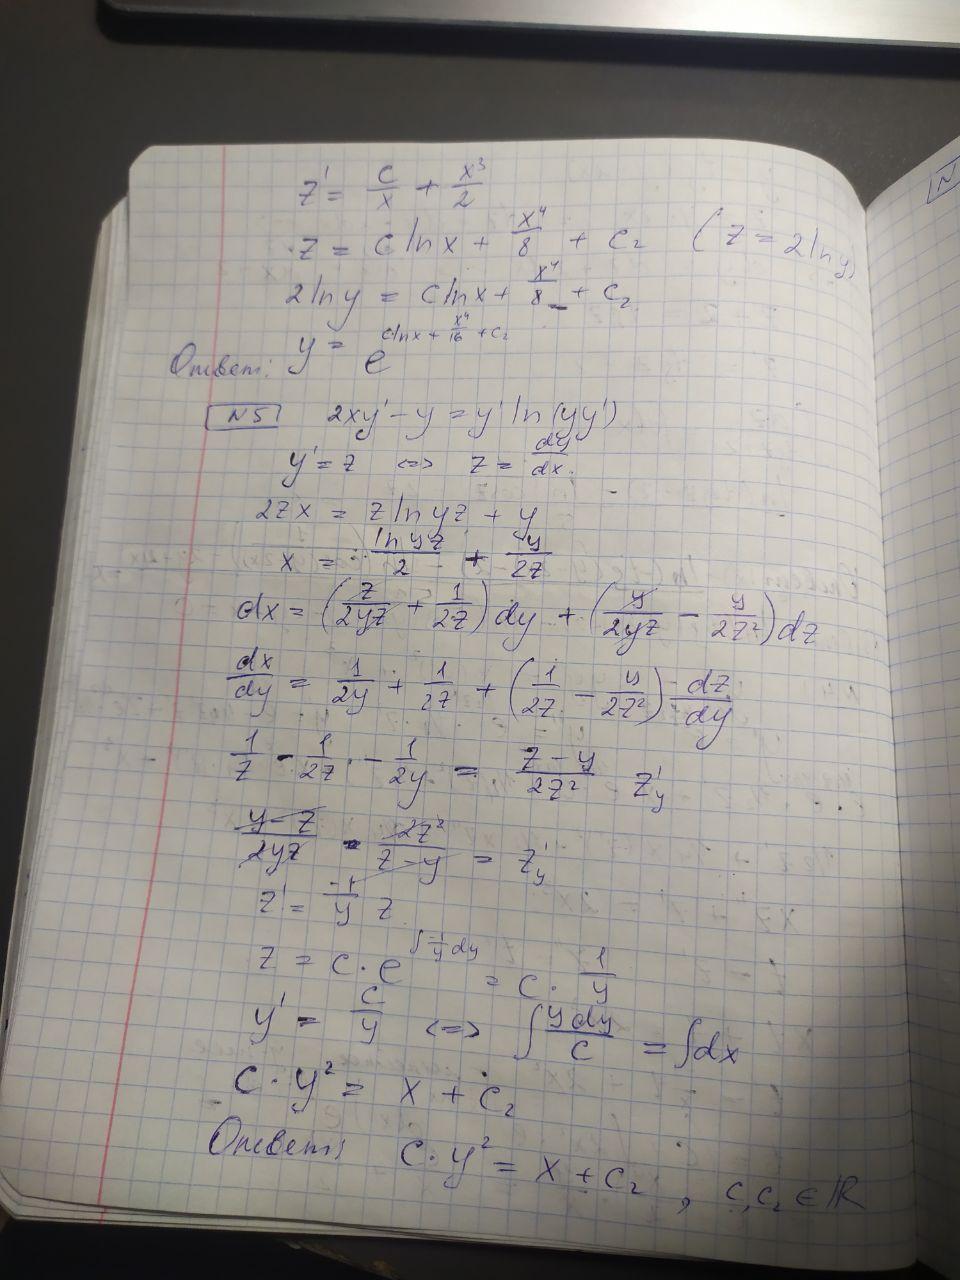 z' = c/x + x³/2
z = c ln x + x⁴/8 + c₂ (z = 2 ln y)
2 ln y = c ln x + x⁴/8 + c₂
Ответ: y = e^(c ln x + x⁴/16 + c₂)
N5 2xy' - y = y' ln(yy')
y' = z <=> z = dy/dx.
2zx = z ln yz + y
x = ln yz/2 + y/2z
dx = (z/2yz + 1/2z) dy + (y/2yz - y/2z²) dz
dx/dy = 1/2y + 1/2z + (1/2z - y/2z²) dz/dy
1/z - 1/2z - 1/2y = z-y/2z² z'y
y-z/2yz · 2z²/z-y = z'y
z' = -1/y z
z = c · e^(∫-1/y dy) = c · 1/y
y' = c/y <=> ∫ y dy/c = ∫dx
c · y² = x + c₂
Ответ: c · y² = x + c₂ , c, c₂ ∈ R
N